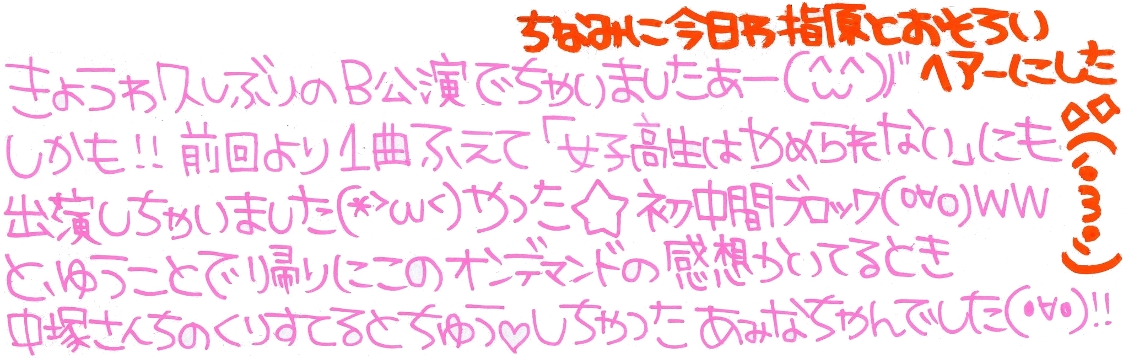 ちなみに今日わ指原とおそろい
ヘアーにした
◇◇(´・ω・`)
きょうわ久しぶりのB公演でちゃいましたあー(^ω^)!!
しかも!!前回より1曲ふえて「女子高生はやめられない」にも
出演しちゃいました(*>ω<)やった☆初中間ブロック(°∀°)WW
と、ゆうことで帰りにこのオンデマンドの感想かいてるとき
中塚さんちのくりすてるとちゅう♡しちゃったあみなちゃんでした(°∀°)!!